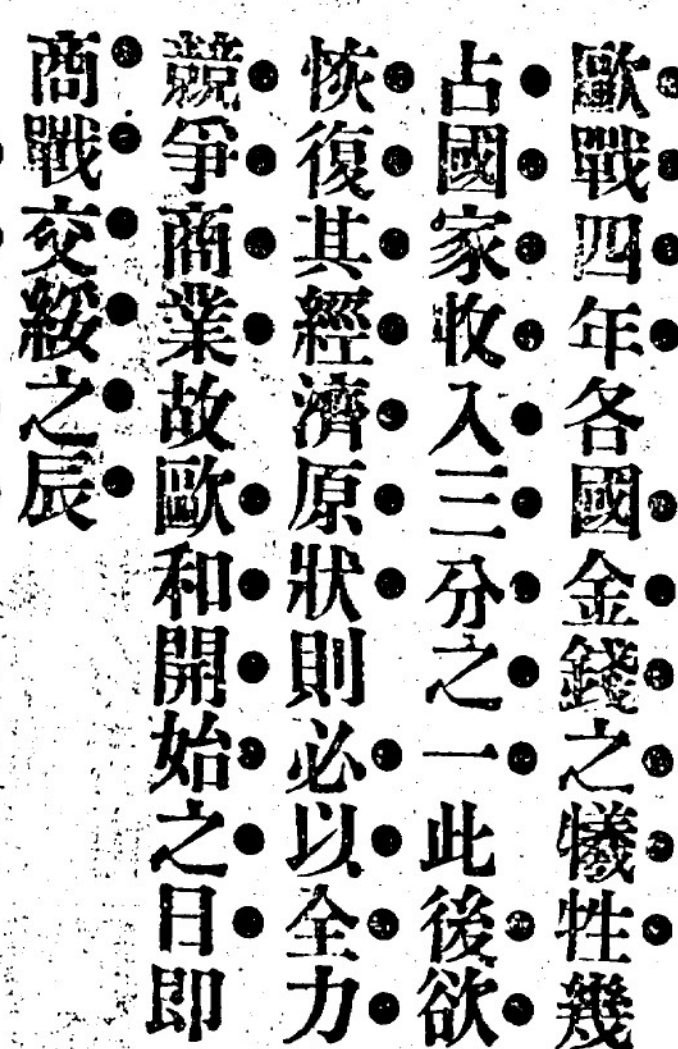 歐戰四年各國金錢之犧牲幾
占國家收入三分之一此後欲
恢復其經濟原狀則必以全力
競爭商業故歐和開始之日即
商戰交綏之辰